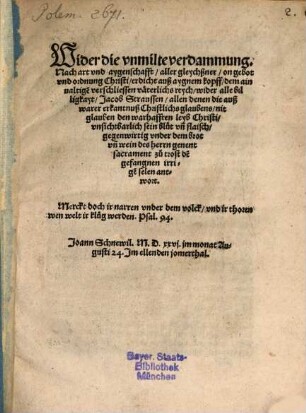 Polem. 2671.
Wider die vnmilte verdammung.
Nach art vnd aygenschafft / aller gleychßner / on gebot
vnd ordnung Christi / erdicht auß aygnem kopff / dem ain
ualtigē verschliessen väterlichs reych / wider alle bil
ligkayt / Jacob Straussen / allen denen die auß
warer erkantnuß Christlichs glaubens / nit
glauben den warhafften leyb Christi /
vnsichtbarlich sein blůt vñ flaisch /
gegenwirtig vnder dem brot
vñ wein des herrn genent
sacrament zů trost dē
gefangnen irri-
gē selen ant-
wort.
Merckt doch ir narren vnder dem volck / vnd ir thorn
wen welt ir klůg werden. Psal. 94.
Joann Schnewil. M. D. xxvj. jm monat Au-
gusti 24. Jm ellenden jomerthal.
Bayer. Staats-
Bibliothek
München